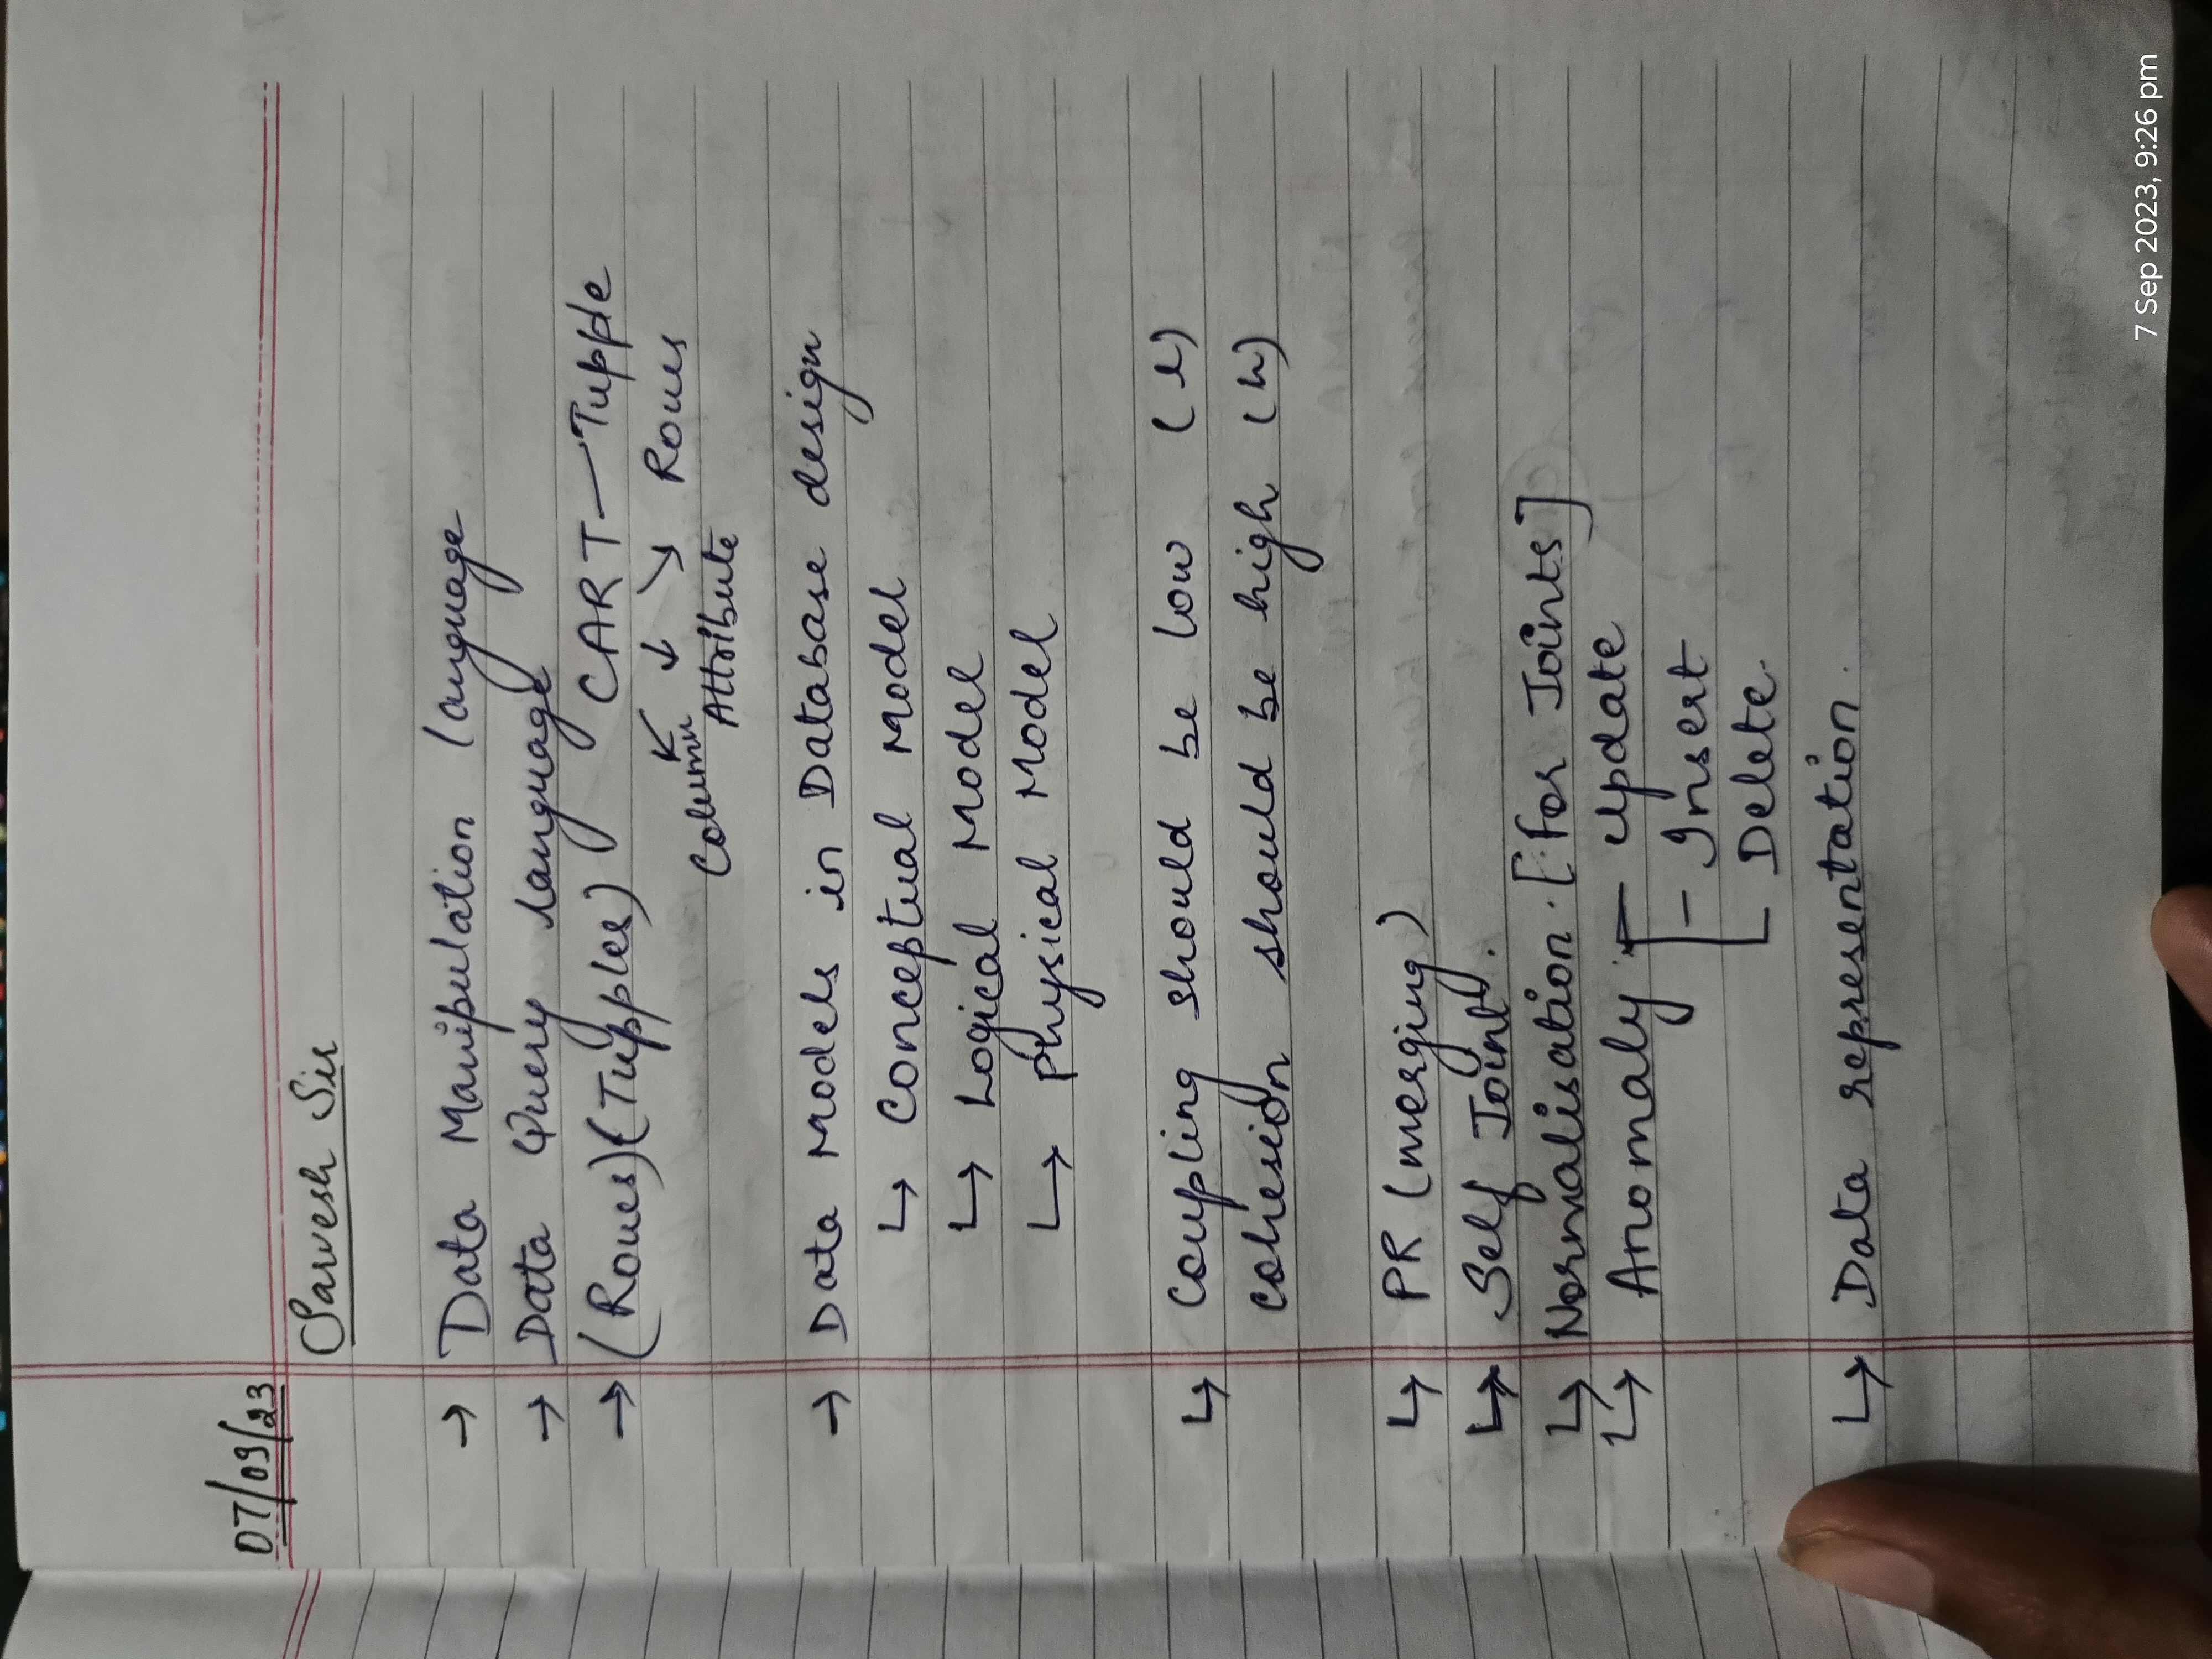 07/09/23
Sarvesh Sir
→ Data Manipulation language
→ Data Query language
→ (Rows)(Tupples) CART — Tupple
Column Attribute Rows
→ Data Models in Database design
↳ Conceptual Model
↳ Logical Model
↳ Physical Model
↳ Coupling should be low (l)
cohesion should be high (h)
↳ PR (merging)
↳ Self Joint.
↳ Normalisation. [for Joints]
↳ Anomaly - Update
- Insert
- Delete.
↳ Data representation.
7 Sep 2023, 9:26 pm